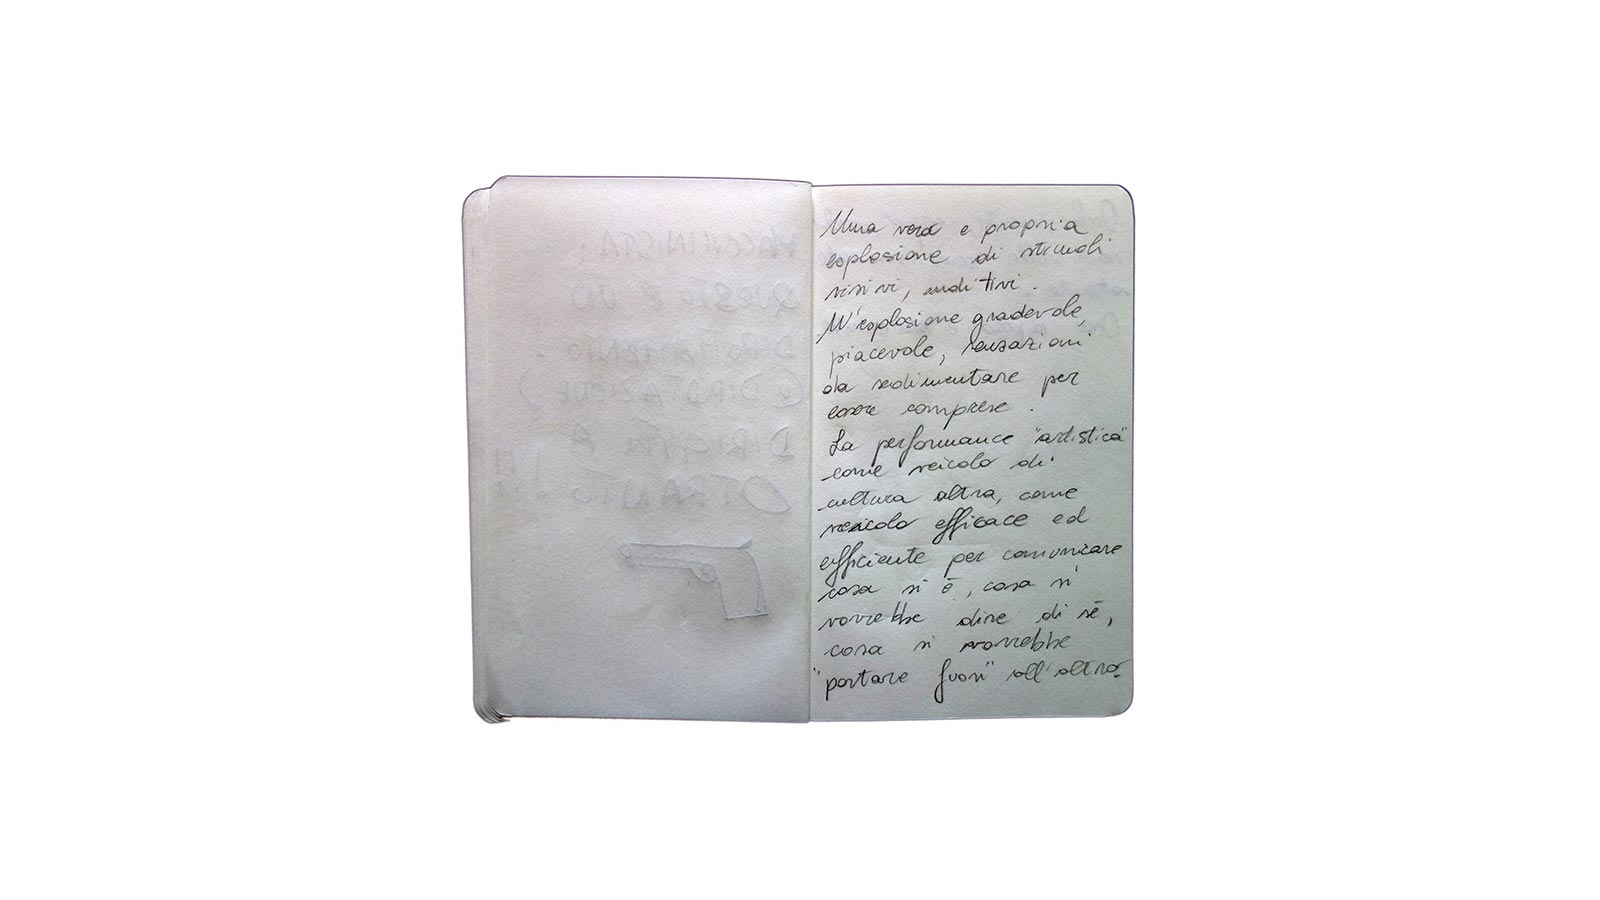 Una vera e propria
esplosione di stimoli
visivi, uditivi.
Un'esplosione gradevole,
piacevole, sensazioni
da sedimentare per
essere comprese.
La performance "artistica"
come veicolo di
cultura altra, come
veicolo efficace ed
efficiente per comunicare
cosa si è, cosa si
vorrebbe dire di sé,
cosa si vorrebbe
"portare fuori" all'altro.